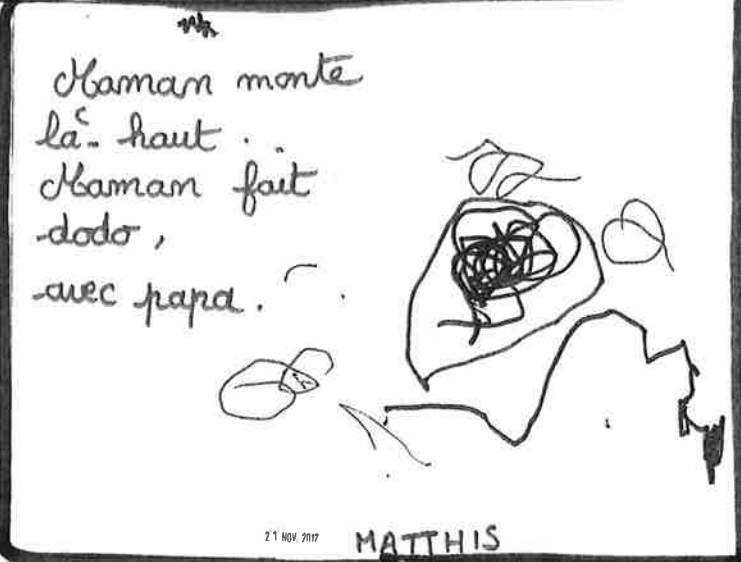 Maman monte
là-haut.
Maman fait
dodo,
avec papa.
21 NOV. 2017
MATTHIS